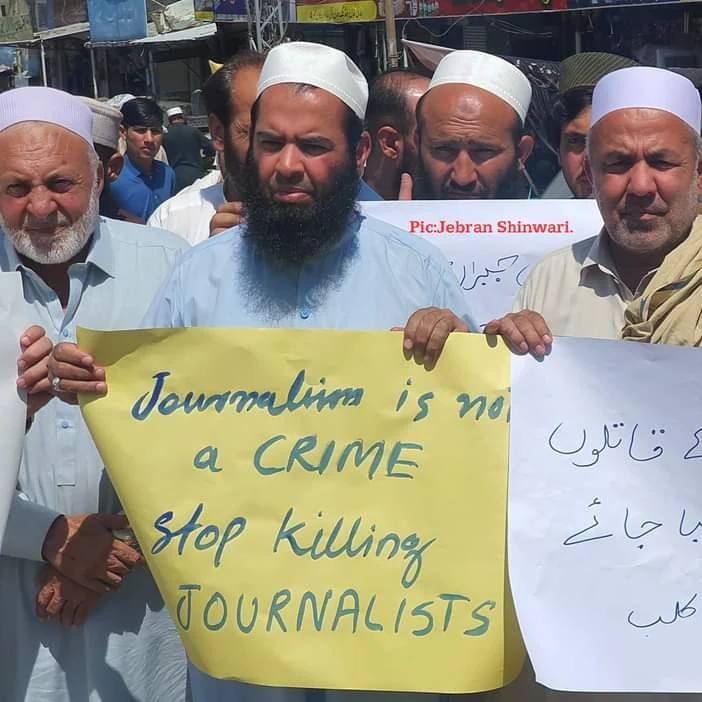 Pic:Jebran Shinwari.
Journalism is not
a CRIME
Stop Killing
JOURNALISTS
کے قاتلوں
جائے
کلب